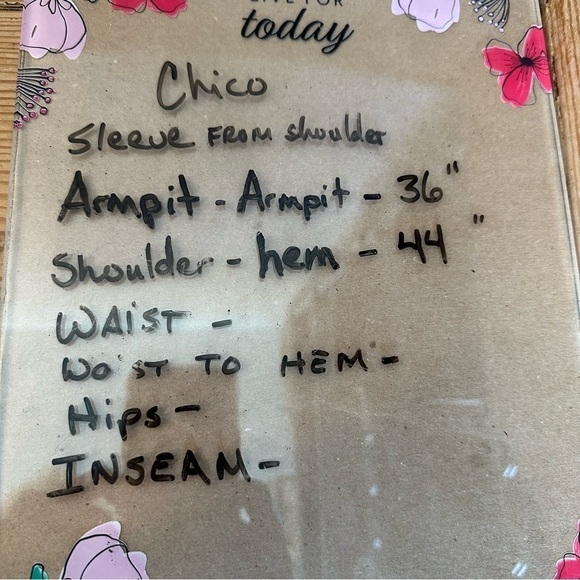 LIVE FOR
today
Chico
Sleeve FROM shoulder
Armpit - Armpit - 36"
Shoulder - hem - 44"
WAIST -
WAIST TO HEM -
Hips -
INSEAM -